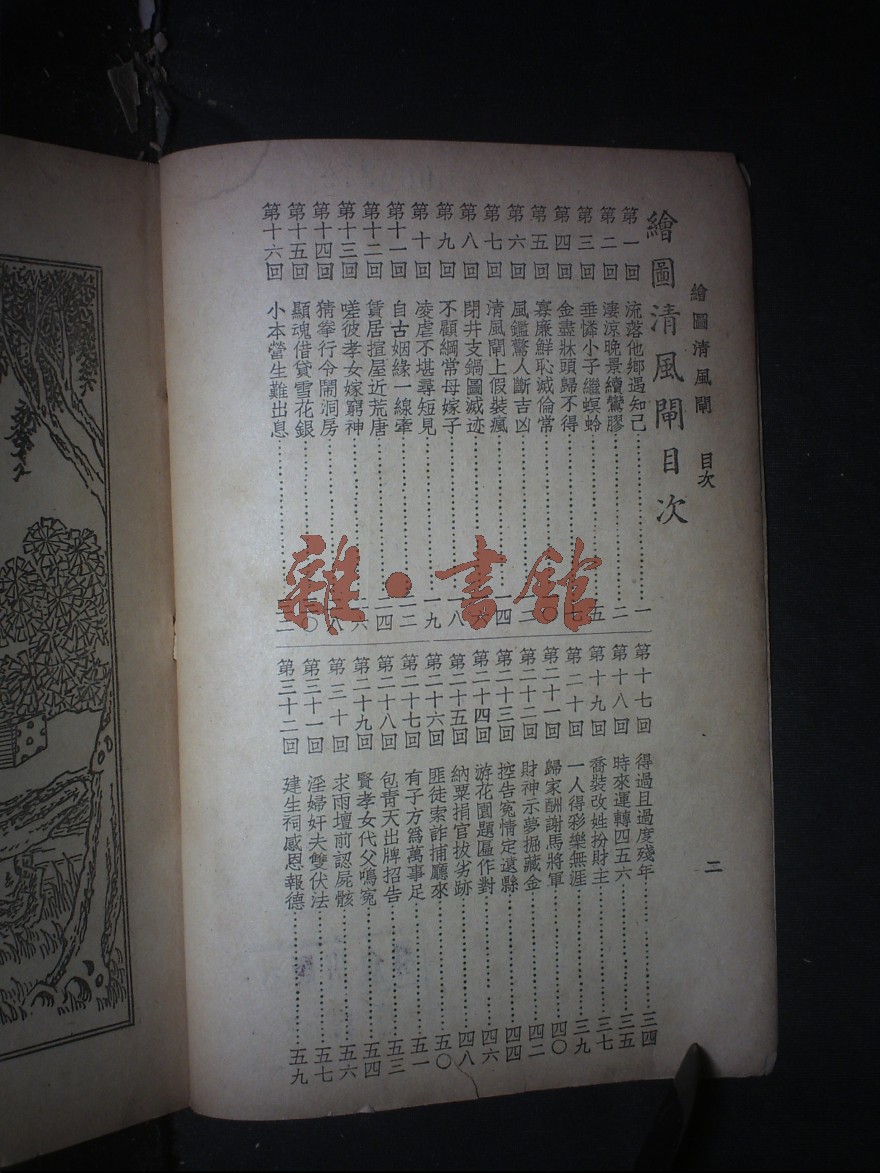 繪圖清風閘 目次 二
繪圖清風閘目次
第一回 流落他鄉遇知己 一
第二回 淒涼晚景續鸞膠 二
第三回 垂憐小子繼螟蛉 五
第四回 金盡牀頭歸不得 七
第五回 寡廉鮮恥滅倫常
第六回 風鑑驚人斷吉凶
第七回 清風閘上假裝瘋 一四
第八回 閉井支鍋圖滅迹
第九回 不顧綱常母嫁子 一八
第十回 凌虐不堪尋短見 一九
第十一回 自古姻緣一線牽 二二
第十二回 賃居揎屋近荒唐 二四
第十三回 嗟彼孝女嫁窮神
第十四回 猜拳行令鬧洞房
第十五回 顯魂借貸雪花銀
第十六回 小本營生難出息
第十七回 得過且過度殘年 三四
第十八回 時來運轉四五六 三五
第十九回 喬裝改姓扮財主 三七
第二十回 一人得彩樂無涯 三九
第二十一回 歸家酬謝馬將軍 四〇
第二十二回 財神示夢掘藏金 四二
第二十三回 控告冤情定遠縣 四四
第二十四回 游花園題匾作對 四六
第二十五回 納粟捐官拔劣跡 四八
第二十六回 匪徒索詐捕廳來 五〇
第二十七回 有子方爲萬事足 五一
第二十八回 包靑天出牌招告 五三
第二十九回 賢孝女代父鳴冤 五四
第三十回 求雨壇前認屍骸 五六
第三十一回 淫婦奸夫雙伏法 五七
第三十二回 建生祠感恩報德 五九
雜·書館